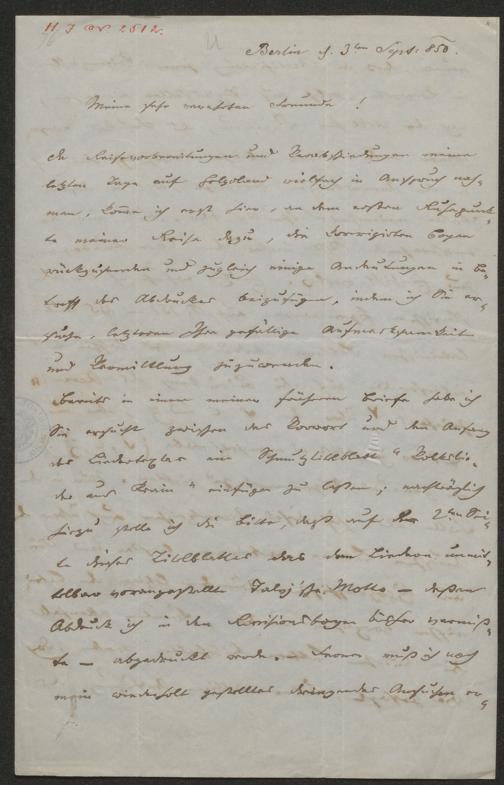 H. J. N. 2512.
Berlin d. 3ten Sept. 850.
Meine sehr verehrten Freunde!
Da Reisevorbereitungen und Verabschiedungen meine
letzten Tage auf Helgoland vielfach in Anspruch nah-
men, komme ich erst hier, an dem ersten Ruhepunk-
te meiner Reise dazu, die korrigirten Bogen
rückzusenden und zugleich einige Andeutungen in be-
treff des Abdruckes beizufügen, indem ich Sie er-
suche, letzteren Ihre gefällige Aufmerksamkeit
und Vermittlung zuzuwenden.
Bereits in einem meiner frühern Briefe habe ich
Sie ersucht zwischen das Vorwort und den Anfang
des Liedertextes ein Schmutztitelblatt "Volkslie-
der aus Krain" einfügen zu lassen; nachträglich
hiezu stelle ich die Bitte, daß auf der 2ten Sei-
te dieses Titelblattes das den Liedern unmit-
telbar vorangestellte Talvj'sche Motto — dessen
Abdruck ich in den Revisionsbogen bisher vermiß-
te — abgedruckt werde. — Ferner muß ich noch
mein wiederholt gestelltes dringendes Ansuchen er-